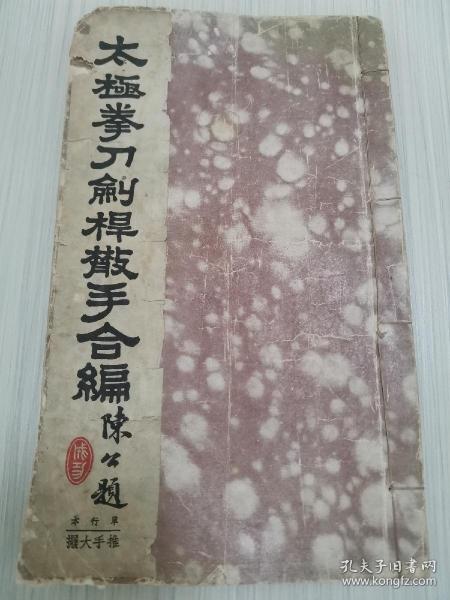 太極拳刀劍桿散手合編
陳公題
單行本
推手大擺
孔夫子旧书网
www.kongfz.com